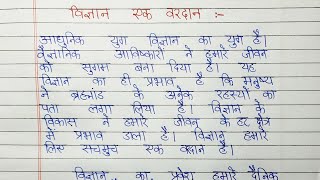 विज्ञान एक वरदान :-
आधुनिक युग विज्ञान का युग है।
वैज्ञानिक आविष्कारों ने हमारे जीवन
को सुगम बना दिया है। यह
विज्ञान का ही प्रभाव है कि मनुष्य
ने ब्रह्माण्ड के अनेक रहस्यों का
पता लगा लिया है। विज्ञान के
विकास ने हमारे जीवन के हर क्षेत्र
में प्रभाव डाला है। विज्ञान हमारे
लिए सचमुच एक वरदान है।
विज्ञान का हमारे दैनिक